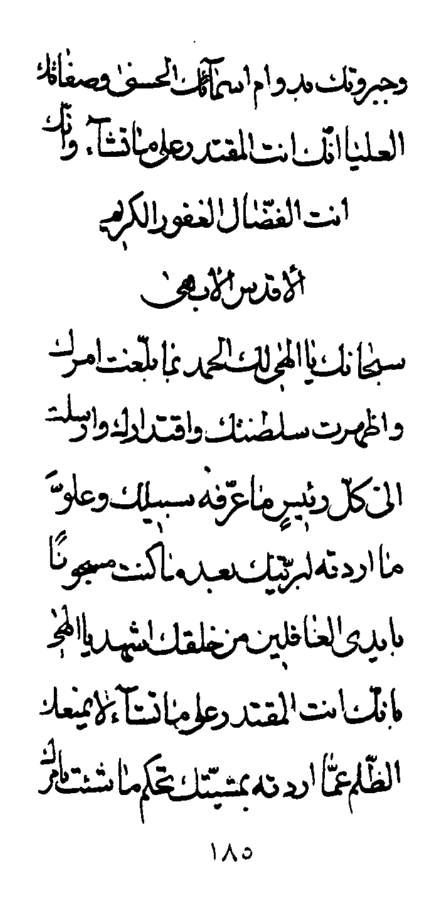 وجبروتك بدوام اسمآئك الحسنى وصفاتك
العليا انّك انت المقتدر على ما تشآء وانّك
انت الفضّال الغفور الكريم
الاقدس الابهى
سبحانك يا الهى لك الحمد بما بلّغت امرك
واظهرت سلطنتك واقتدارك وارسلت
الى كلّ رئيسٍ ما عرّفه سبيلك وعلوّ
ما اردته لبريّتك بعد ما كنت مسجونًا
بايدى الغافلين من خلقك اشهد يا الهى
بانّك انت المقتدر على ما تشآء لا يمنعك
الظّلم عمّا اردته بمشيّتك تحكم ما شئت بامرك
١٨٥